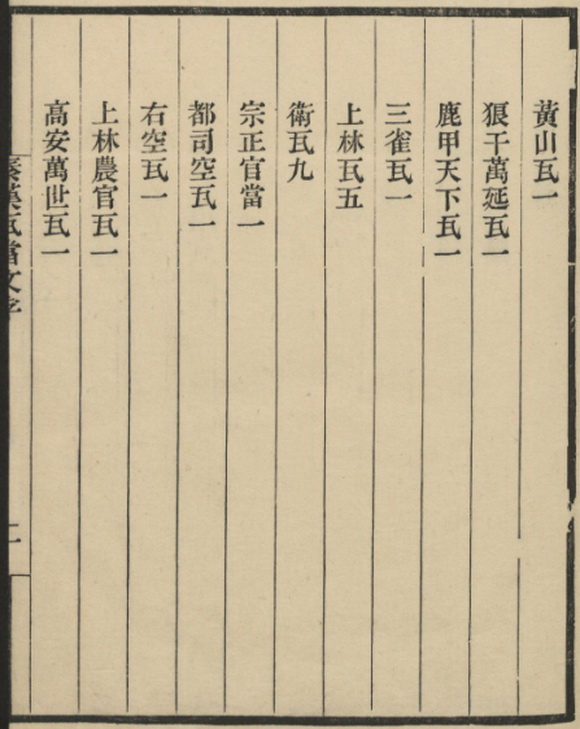 黃山瓦一
狠干萬延瓦一
鹿甲天下瓦一
三雀瓦一
上林瓦五
衛瓦九
宗正官當一
都司空瓦一
右空瓦一
上林農官瓦一
高安萬世瓦一
秦漢瓦當文字
二